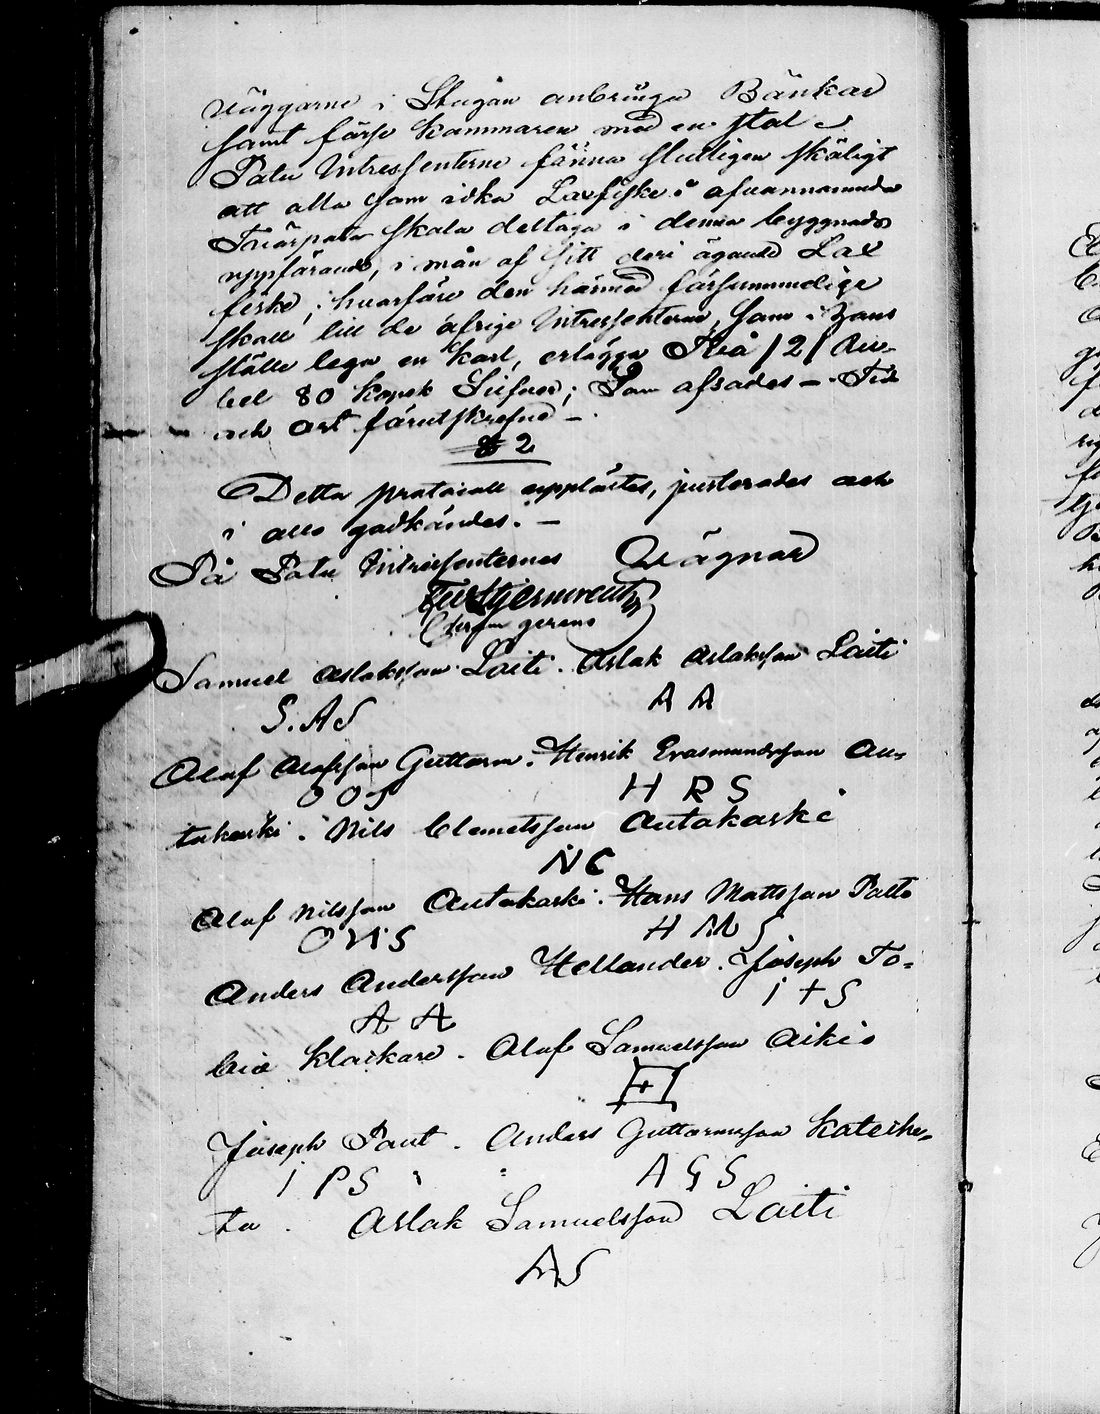 väggarne i Stugan anbringa Bänkar
samt förse kammaren med en stol
Pata Intressenterne finna slutligen skäligt
att alla som idka Laxfiske i ofvannämnde
Tvärpata skola deltaga i denna byggnads
uppförande, i mån af sitt deri ägande Lax
fiske, hvarföre den härmed försummelige
skall till de öfrige Intressenterne, som i hans
ställe lega en karl, erlägga Två /2/ Ru-
bel 80 kopek Silfver; Som afsades — Tid
och ort förutskrefne —
§ 2
Detta protocoll upplästes, justerades och
i allo godkändes. —
På Pata Intressenternes Vägnar
gerens
Samuel Aslaksson Laiti . Aslak Aslaksson Laiti
S. A S A A
Olof Olofsson Guttorm . Henrik Erasmundsson Au-
O O S H R S
takaski . Nils Clemetsson Autakaski
N C
Olof Nilsson Autakaski . Hans Mattsson Palto
O N S H M S
Anders Andersson Hellander . Joseph To-
A A i + S
bia Klockare . Olof Samuelsson Aikio
+
Joseph Paut . Anders Guttormsson Kateche-
I P S A G S
ta . Aslak Samuelsson Laiti
A S